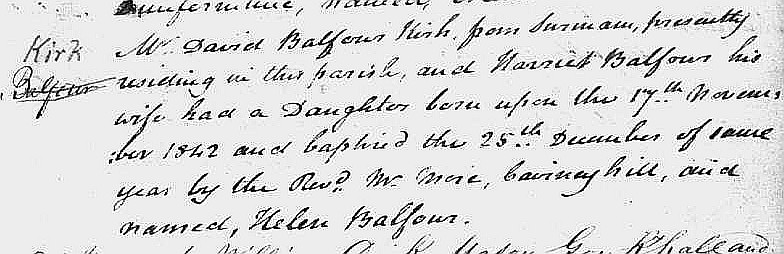 Dunfermline, named,
Kirk
Balfour
Mr. David Balfour Kirk, from Surinam, presently
residing in this parish, and Harriet Balfour his
wife had a Daughter born upon the 17th Novem-
ber 1842 and baptized the 25th December of same
year by the Revd. Mr. More, Cairneyhill, and
named, Helen Balfour.